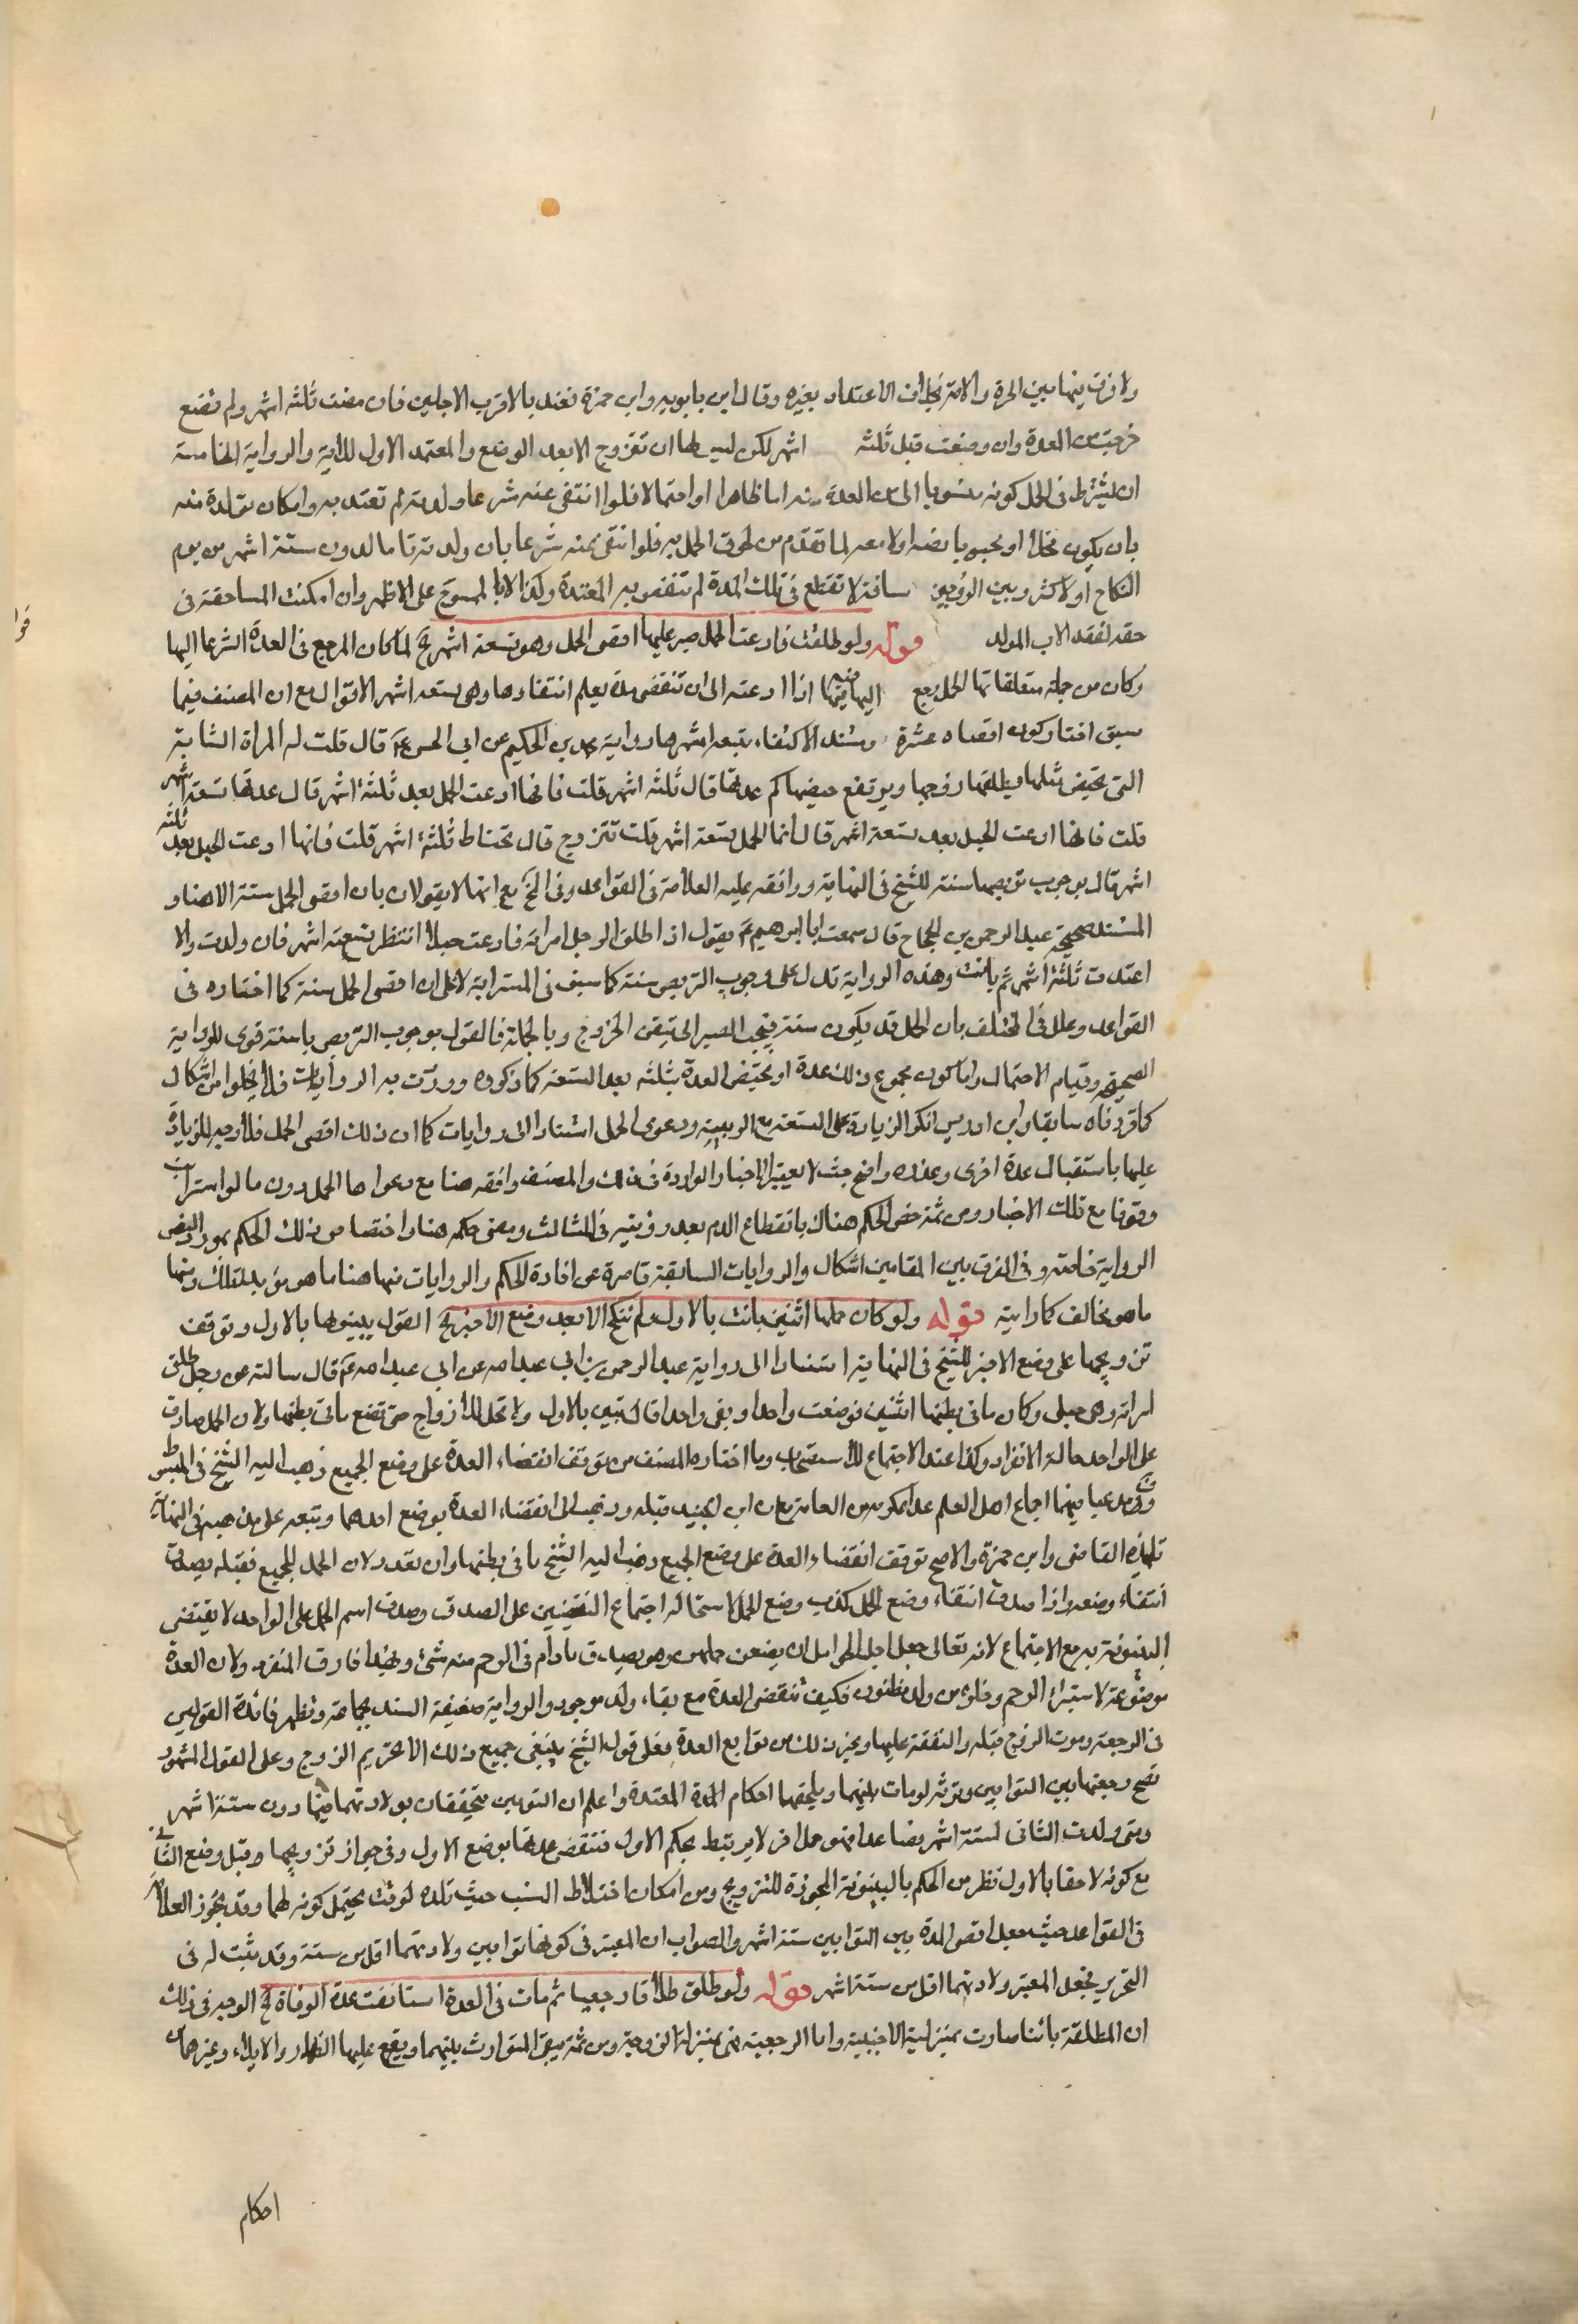 ولا فرق فيها بين الحرة والامة بخلاف الاعتداد بغيره وقال ابن بابويه وابن حمزة تعتد بالاقرب الاجلين فان مضت ثلثه اشهر ولم تضع
خرجت من العدة وان وضعت قبل ثلثه اشهر لكن ليس لها ان تتزوج الا بعد الوضع والمعتمد الاول للاية والرواية الخامسة
ان يشترط في الحمل كونه منسوبا الى من العدة منه اما ظاهرا او احتمالا فلو انتفى عنه شرعا ولدته لم تعتد به وامكان تولده منه
بان يكون فحلا او مجبوبا بيضه اولا معه لما تقدم من لحوق الحمل به فلو انتفى عنه شرعا بان ولدته تاما لدون ستة اشهر من يوم
النكاح او لاكثر وبين الزوجين مسافة لا تقطع في تلك المدة لم تنقض به المعتدة وكذا لو ابا الممسوح على الاظهر وان امكنت المساحقة في
حقه لفقد الاب المولد قوله ولو طلقت فادعت الحمل صبر عليها اقصى الحمل وهو تسعة اشهر الخ لما كان المرجع في العدة الشرعية اليها
وكان من جملة متعلقاتها الحمل رجع اليها فيه فيها اذا ادعته الى ان تنقضي مدة يعلم انتفاؤها وهى تسعة اشهر الاقوال مع ان المصنف فيما
سبق اختار كون اقصاه عشرة ومستند الاكتفاء بتسعة اشهر هنا رواية محمد بن الحكيم عن ابي الحسن ع قال قلت له المراة الشابة
التي تحيض مثلها يطلقها زوجها ويرتفع حيضها كم عدتها قال ثلثه اشهر قلت فانها ادعت الحمل بعد ثلثة اشهر قال عدتها تسعة اشهر
قلت فانها ادعت الحبل بعد تسعة اشهر قال انما الحمل تسعة اشهر قلت تتزوج قال تحتاط ثلثة اشهر قلت فانها ادعت الحبل بعد ثلثه
اشهر قال بوجوب تربصها سنة للشيخ في النهاية ووافقه عليه العلامة في القواعد وفي الخ مع انهما لا يقولان بان اقصى الحمل سنة الاهنا و
المستند صحيحة عبد الرحمن بن الحجاج قال سمعت ابا ابراهيم ع يقول اذا طلق الرجل امراته فادعت حبلا انتظر تسعة اشهر فان ولدت والا
اعتدت ثلثة اشهر ثم بانت وهذه الرواية تدل على وجوب التربص سنة كما سبق في المسترابة لا على ان اقصى الحمل سنة كما اختاره في
القواعد وعلل في المختلف بان الحمل قد يكون سنة فيجب الصبر الى تيقن الخروج وبالجملة فالقول بوجوب التربص بالسنة قوى للرواية
الصحيحة وقيام الاحتمال واما كون مجموع ذلك عدة او تحتض العدة بثلثه بعد التسعة كما ذكروه ووردت به الروايات فلا يخلوا من اشكال
كما قررناه سابقا وابن ادريس انكر الزيادة على التسعة مع الريبة ودعوى الحمل استنادا الى روايات كما ان ذلك اقصى الحمل فلا وجه للزيادة
عليها باستقبال عدة اخرى وعذره واضح حيث لا يعتبر الاخبار الواردة في ذلك والمصنف وافقه هنا مع دعواها الحمل دون ما لو استرابت
وقوفا مع تلك الاخبار ومن ثمة خص الحكم هناك بانقطاع الدم بعد رؤيته في الثالث ومضى حكمه هنا واختصا من ذلك الحكم بمورد النص
الرواية خاصة وفي الفرق بين المقامين اشكال والروايات السابقة قاصرة عن افادة الحكم والروايات منها هنا ما هو مؤيد لتلك ومنها
ما هو مخالف كما رايته قوله ولو كان حملها اثنين بانت بالاول ولم تنكح الا بعد وضع الاخير الخ القول ببينونتها بالاول وتوقف
تزويجها على وضع الاخير للشيخ في النهاية استنادا الى رواية عبد الرحمن بن ابي عبد الله عن ابي عبد الله ع قال سالته عن رجل طلق
امراته وهى حبلى وكان ما في بطنها اثنين فوضعت واحدا وبقى واحد قال تبين بالاول ولا تحل للازواج حتى تضع ما في بطنها ولان الحمل صادق
على الواحد حالة الانفراد وكذا عند الاجتماع للاستصحاب وما اختاره المصنف من توقف انقضاء العدة على وضع الجميع ذهب اليه الشيخ في المبسوط
وف مدعيا فيهما اجماع اهل العلم عدا عكرمه من العامة مع ان ابن الجنيد قبله ذهب الى انقضاء العدة بوضع احدهما وتبعه على مذهبه في النهاية
تلميذه القاضى وابن حمزة والاصح توقف انقضاء العدة على وضع الجميع ذهب اليه الشيخ ما في بطنها وان تعدد ولان الحمل للجميع فقبله يصدق
انتفاء وضعه واذا صدق انتفاء وضع الحمل كذب وضع الحمل لاستحالة اجتماع النقيضين على الصدق وصدق اسم الحمل على الواحد لا يقتضى
البينونة به مع الاجتماع لانه تعالى جعل اجل الحوامل ان يضعن حملهن وهو يصدق مادام في الرحم منه شئ وبهذا فارق المنفرد ولان العدة
موضوعة لاستبراء الرحم وخلوه من ولد مظنون فكيف تنقضى العدة مع بقاء ولد موجود والرواية ضعيفة السند بجماعة وتظهر فائدة القولين
في الرجعة وموت الزوج قبله والنفقة عليها وغير ذلك من توابع العدة فعلى قول الشيخ ينتفى جميع ذلك الا تحريم الزوج وعلى القول المشهور
تصح رجعتها بين التوامين وتوثر لومات بينهما ويلحقها احكام المدة المعتدة واعلم ان التومين يتحققان بولادتهما فيما دون ستة اشهر
ومتى ولدت الثانى لستة اشهر فصاعدا فهو حمل اخر لا يرتبط بحكم الاول فتنقضى عدتها بوضع الاول وفي جواز تزويجها وقبل وضع الثاني
مع كونه لاحقا بالاول نظر من الحكم بالبينونة المجوزة للتزويج ومن امكان اختلاط النسب حيث تلده لوقت يحتمل كونه لهما وقد يجوز العلامة
في القواعد حيث جعل اقصى المدة بين التوامين ستة اشهر والصواب ان المعتبر في كونها توامين ولادتهما اقل من ستة وقد ثبت له في
التحرير فجعل المعتبر ولادتهما اقل من ستة اشهر قوله ولو طلق طلاقا رجعيا ثم مات في العدة استانفت عدة الوفاة الخ الوجه في ذلك
ان المطلقة بائنا صارت بمنزلة الاجنبية واما الرجعية فهى بمنزلة الزوجة ومن ثمة يبقى التوارث بينهما ويقع عليها الظهار والايلاء وغيرهما من
احكام